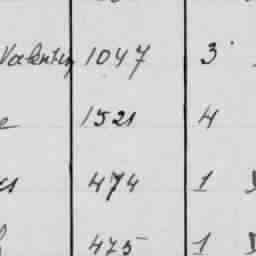 Valentin 1047 3
1521 4
474 1
475 1